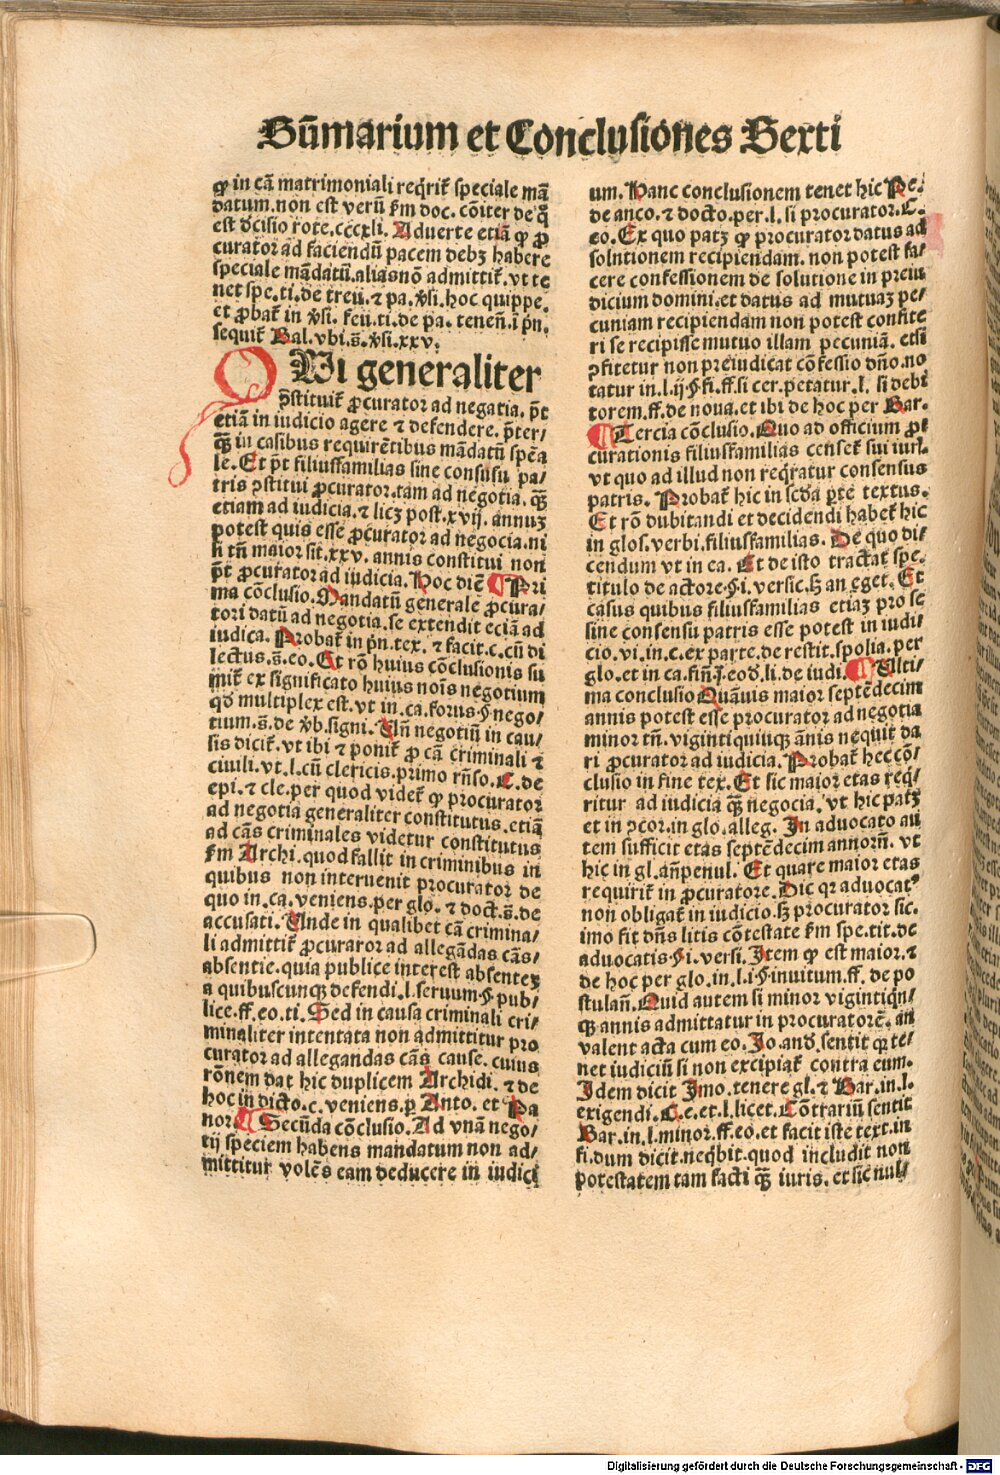 Sūmarium et Conclusiones Sexti
ꝙ in cā matrimoniali reqͥrit̃ speciale mā
datum. non est verū fm doc. cōiter de q̄
est dc̄isio rote. cccxli. Aduerte etiā ꝙ ꝓ
curator ad faciendū pacem debꝫ habere
speciale mādatū. alias nō admittit̃. vt te
net spe. ti. de treu. ⁊ pa. ꝟsi. hoc quippe.
et ꝓbat̃ in ꝟsi. feu. ti. de pa. teneñ. ī pñ.
sequit̃ Bal. vbi. s̄. ꝟsi. xxv.
QUi generaliter
ꝯstituit̃ ꝓcurator ad negatia. pt̄
etiā in iudicio agere ⁊ defendere. p̄ter/
qꝫ in casibus requirētibus mādatū spēa
le. Et pt̄ filiusfamilias sine consusu pa/
tris ꝯstitui ꝓcurator. tam ad negotia. qꝫ
etiam ad iudicia. ⁊ licꝫ post. xvij. annuꝫ
potest quis esse ꝓcurator ad negocia. ni
si tñ maior sit. xxv. annis constitui non
pt̄ ꝓcurator ad iudicia. Hoc diē ¶ Pri
ma cōclusio. Mandatū generale ꝓcura/
tori datū ad negotia. se extendit eciā ad
iudica. Probat̃ in pñ. tex. ⁊ facit. c. cū di
lectus. s̄. eo. Et rō huius cōclusionis su
mit̃ ex significato huius nois negotium
qd̄ multiplex est. vt in. ca. forus. §. nego/
tium. s̄. de ꝟb. signi. Uñ negotiū in cau/
sis dicit̃. vt ibi ⁊ ponit̃ ꝓ cā criminali ⁊
ciuili. vt. l. cū clericis. primo rñso. C. de
epi. ⁊ cle. per quod videt̃ ꝙ procurator
ad negotia generaliter constitutus. etiā
ad cās criminales videtur constitutus
fm Archi. quod fallit in criminibus in
quibus non interuenit procurator de
quo in. ca. veniens. per glo. ⁊ doct. s̄. de
accusati. Unde in qualibet cā crimina/
li admittit̃ ꝓcuraror ad allegādas cās/
absentie. quia publice interest absentes
a quibuscunqꝫ defendi. l. seruum. §. pub/
lice. ff. eo. ti. Sed in causa criminali cri/
minaliter intentata non admittitur pro
curator ad allegandas cās cause. cuius
rōnem dat hic duplicem Archidi. ⁊ de
hoc in dicto. c. veniens. ꝑ Anto. et Pa
nor. ¶ Secūda cōclusio. Ad vnā nego/
tij speciem habens mandatum non ad/
mittitur volēs eam deducere in iudici
um. Hanc conclusionem tenet hic Pe.
de anco. ⁊ docto. per. l. si procurator. C.
eo. Ex quo patꝫ ꝙ procurator datus ad
solntionem recipiendam. non potest fa/
cere confessionem de solutione in preiu
dicium domini. et datus ad mutuaꝫ pe/
cuniam recipiendam non potest confite
ri se recipisse mutuo illam pecuniā. etsi
ꝯfitetur non preiudicat cōfessio dño. no
tatur in. l. ij. §. fi. ff. si cer. petatur. l. si debi
torem. ff. de noua. et ibi de hoc per Bar.
¶ Tercia cōclusio. Quo ad officium ꝓ
curationis filiusfamilias censet̃ sui iur/.
vt quo ad illud non reqͥratur consensus
patris. Probat̃ hic in scd̄a ꝑte textus.
Et rō dubitandi et decidendi habet̃ hic
in glos. verbi. filiusfamilias. De quo di/
cendum vt in ea. Et de isto tractat spe.
titulo de actore. §. i. versic. sꝫ an eget. Et
casus quibus filiusfamilias etiaꝫ pro se
sine consensu patris esse potest in iudi/
cio. vi. in. c. ex parte. de restit. spolia. per
glo. et in ca. fiñ. j. eod̄. li. de iudi. ¶ Ulti/
ma conclusio Quāuis maior septēdecim
annis potest esse procurator ad negotia
minor tñ. viginti quiuqꝫ ānis nequit da
ri ꝓcurator ad iudicia. Probat̃ hec cō/
clusio in fine tex. Et sic maior etas reqͥ/
ritur ad iudicia qꝫ negocia. vt hic patꝫ
et in ꝯcor. in glo. alleg. In aduocato au
tem sufficit etas septēdecim annorū. vt
hic in gl. añpenul. Et quare maior etas
requirit̃ in ꝓcuratore. Dic qꝛ aduocatꝰ
non obligat̃ in iudicio. sꝫ procurator sic.
imo fit dñs litis cōtestate fm spe. tit. de
aduocatis. §. i. versi. Item ꝙ est maior. ⁊
de hoc per glo. in. l. i. §. inuitum. ff. de po
stulañ. Quid autem si minor vigintiqͥn/
qꝫ annis admittatur in procuratorē. an
valent acta cum eo. Jo. and̄. sentit qꝛ te/
net iudiciū si non excipiat̃ contra eum.
Idem dicit Imo. tenere gl. ⁊ Bar. in. l.
exigendi. C. e. et. l. licet. Cōtrariū sentit
Bar. in. l. minor. ff. eo. et facit iste text. in
fi. dum dicit. neqͥbit. quod includit non
potestatem tam facti qꝫ iuris. et sic nul/
Digitalisierung gefördert durch die Deutsche Forschungsgemeinschaft - DFG